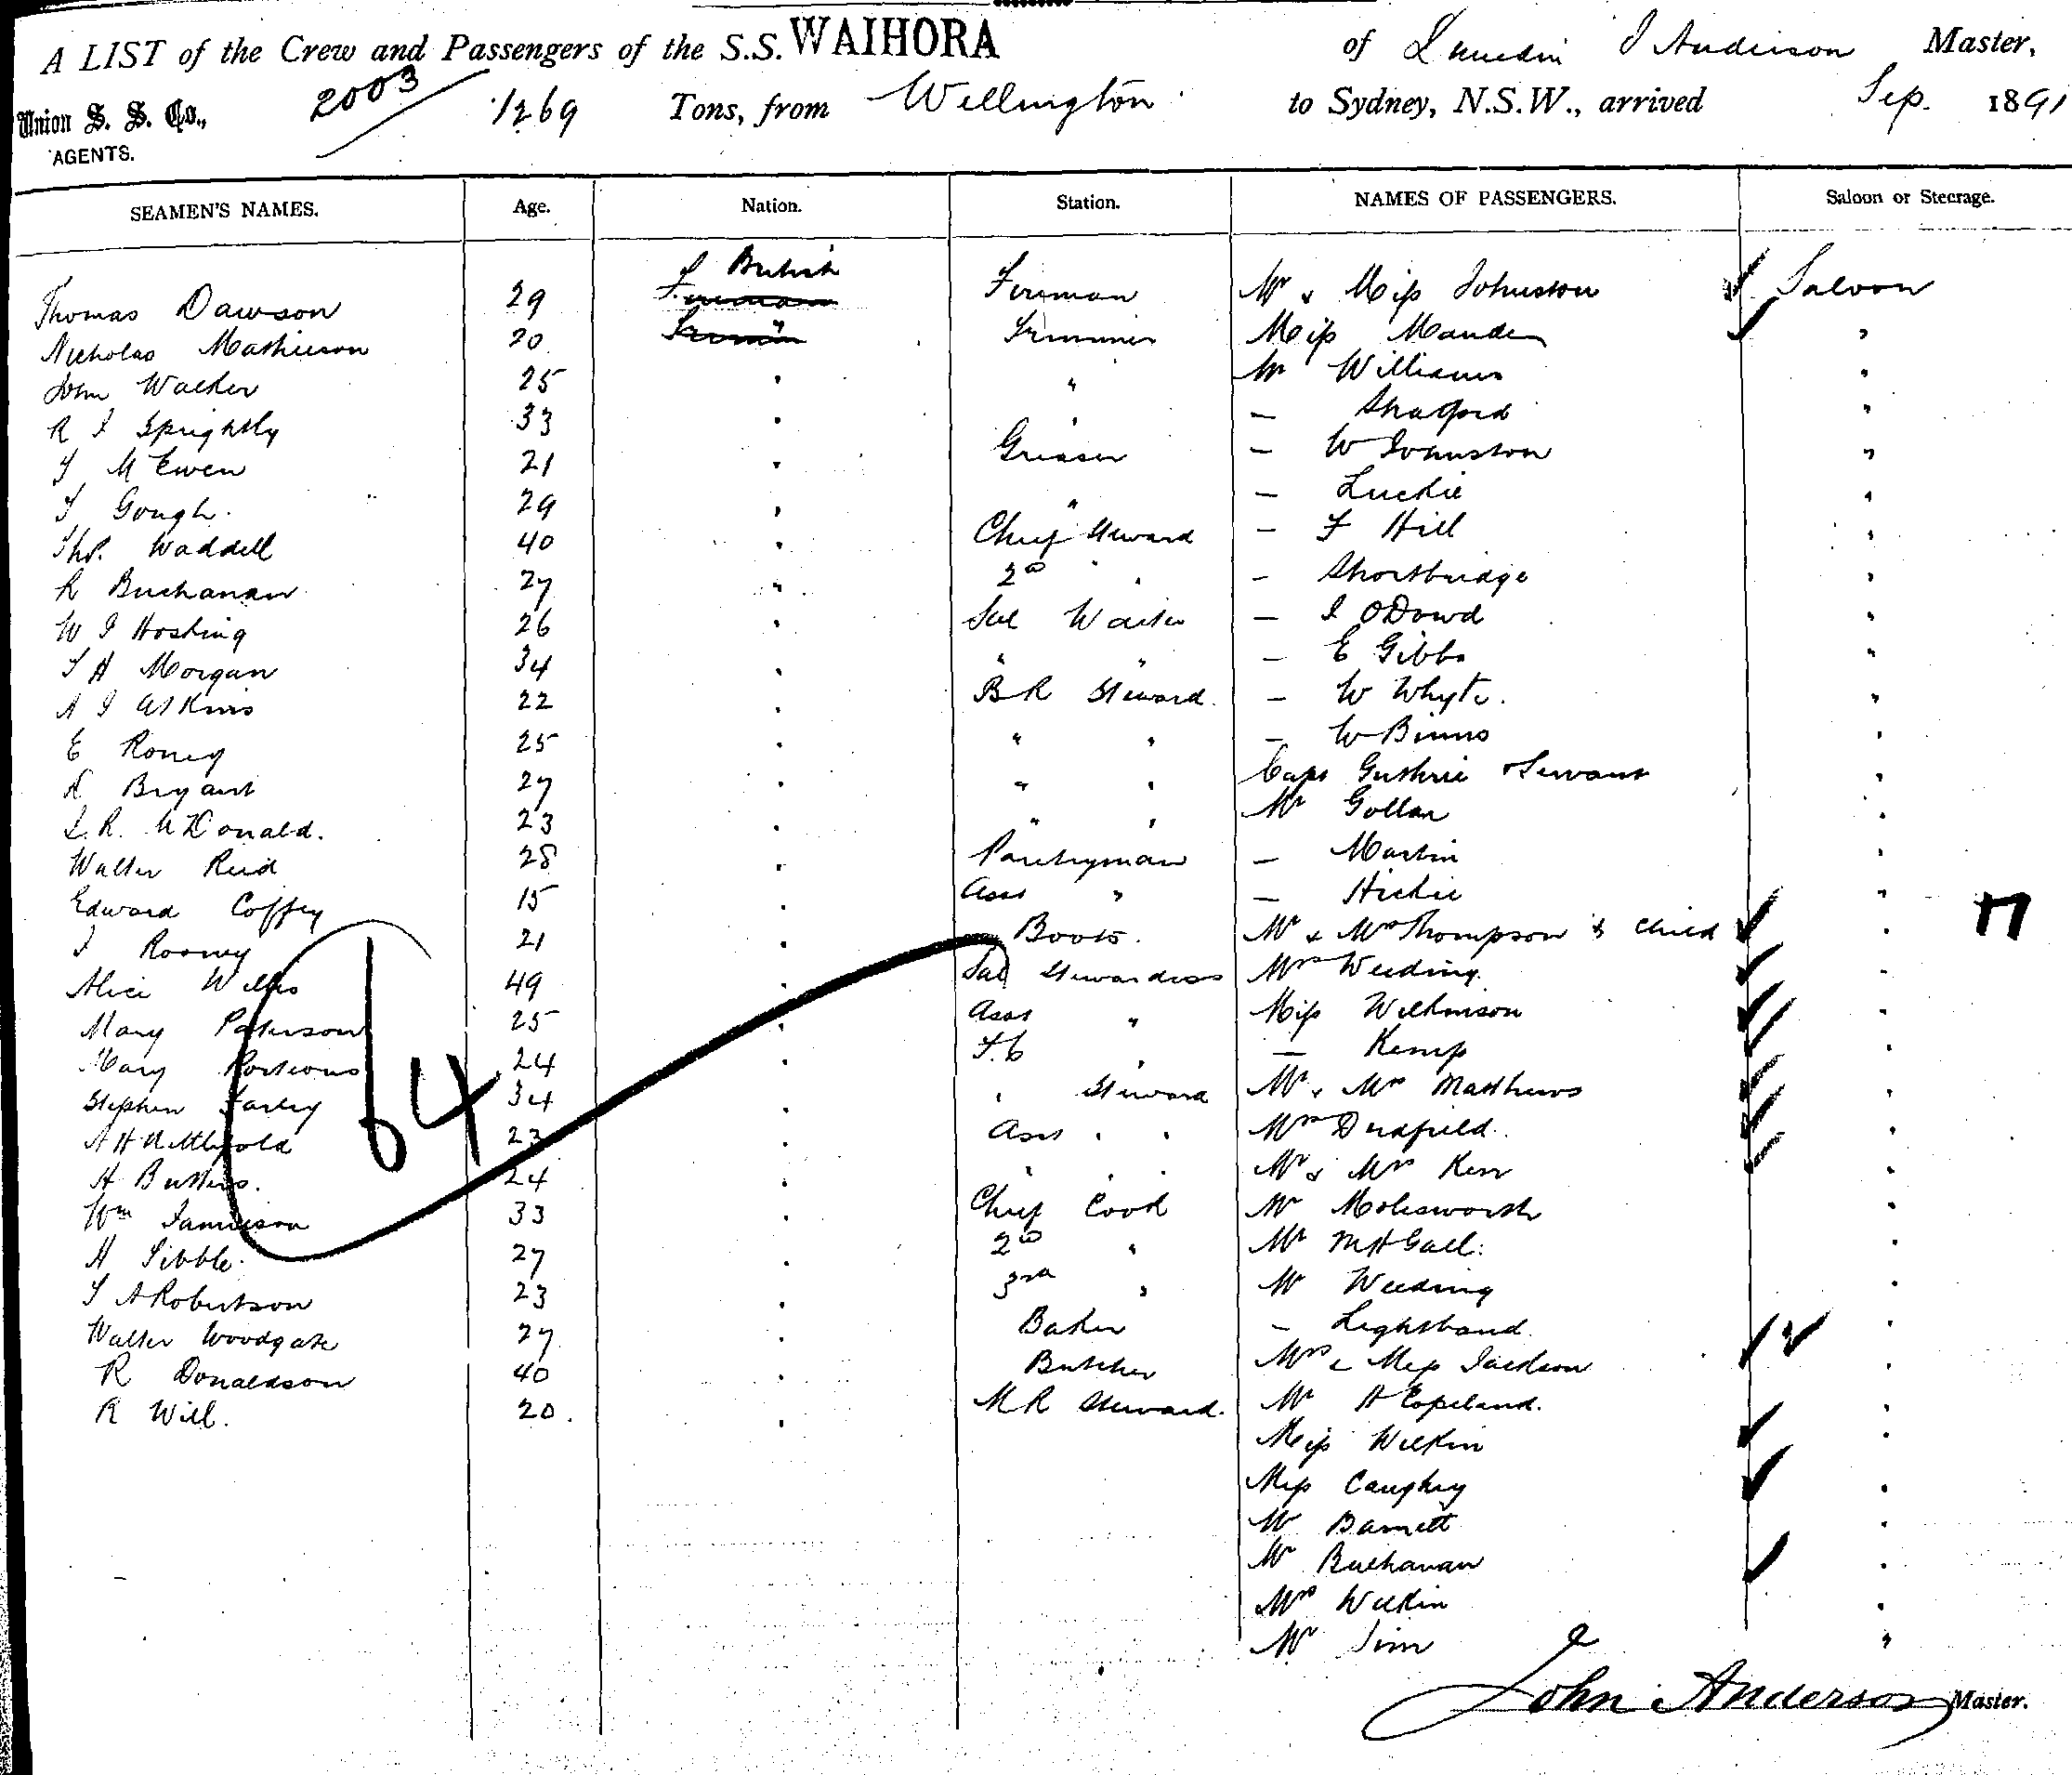 A LIST of the Crew and Passengers of the S.S. WAIHORA of Dunedin J Anderson Master,
Union S. S. Co., AGENTS. 2003 1269 Tons, from Wellington to Sydney, N.S.W., arrived Sep. 1891
SEAMEN'S NAMES. Age. Nation. Station. NAMES OF PASSENGERS. Saloon or Steerage.
Thomas Dawson 29 British Fireman Mr & Miss Johnston Saloon
Nicholas Mathieson 20 " Trimmer Miss "
John Walker 25 " " Mr Williams "
R J Sprightly 33 " " — "
J McEwen 21 " Greaser — W Johnston "
J Gough. 29 " " — Luckie "
Thos. Waddell 40 " Chief Steward — F Hill "
R Buchanan 27 " 2nd " — Shortbridge "
W J Hosking 26 " Sal Waiter — J ODowd "
J H Morgan 34 " " " — E Gibbs "
A J Atkins 22 " B R Steward. — W Whyte. "
E Roney 25 " " " — W Binns "
A Bryant 27 " " " Capt Guthrie & Servant "
J. R. McDonald. 23 " " " Mr Gollan "
Walter Reid 28 " Pantryman — Martin "
Edward Coffey 15 " Asst " — Hickie "
J Rooney 21 " Boots. Mr & Mrs Thompson & Child " 17
Alice Willis 49 " Sal Stewardess Mrs Weeding "
Mary Paterson 25 " Asst " Miss Wilkinson "
Mary Porteous 24 " F.C " — Kemp "
Stephen Farley 34 " " Steward Mr & Mrs Matthews "
A H Nettlefold 23 " Asst " " Mrs Dudfield. "
H Butters. 24 " " " Mr & Mrs Kerr "
Wm Jamieson 33 " Chief Cook Mr Molesworth "
H Tibble. 27 " 2nd " Mr "
J A Robertson 23 " 3rd " Mr Weeding "
Walter Woodgate 27 " Baker — Lightband "
R Donaldson 40 " Butcher Mrs & Miss Jackson "
R Will. 20. " M R Steward. Mr H Copeland. "
Miss Wilkin "
Miss Caughey "
Mr Barnett "
Mr Buchanan "
Mrs Wilkin "
Mr Sim "
64
John Anderson Master.